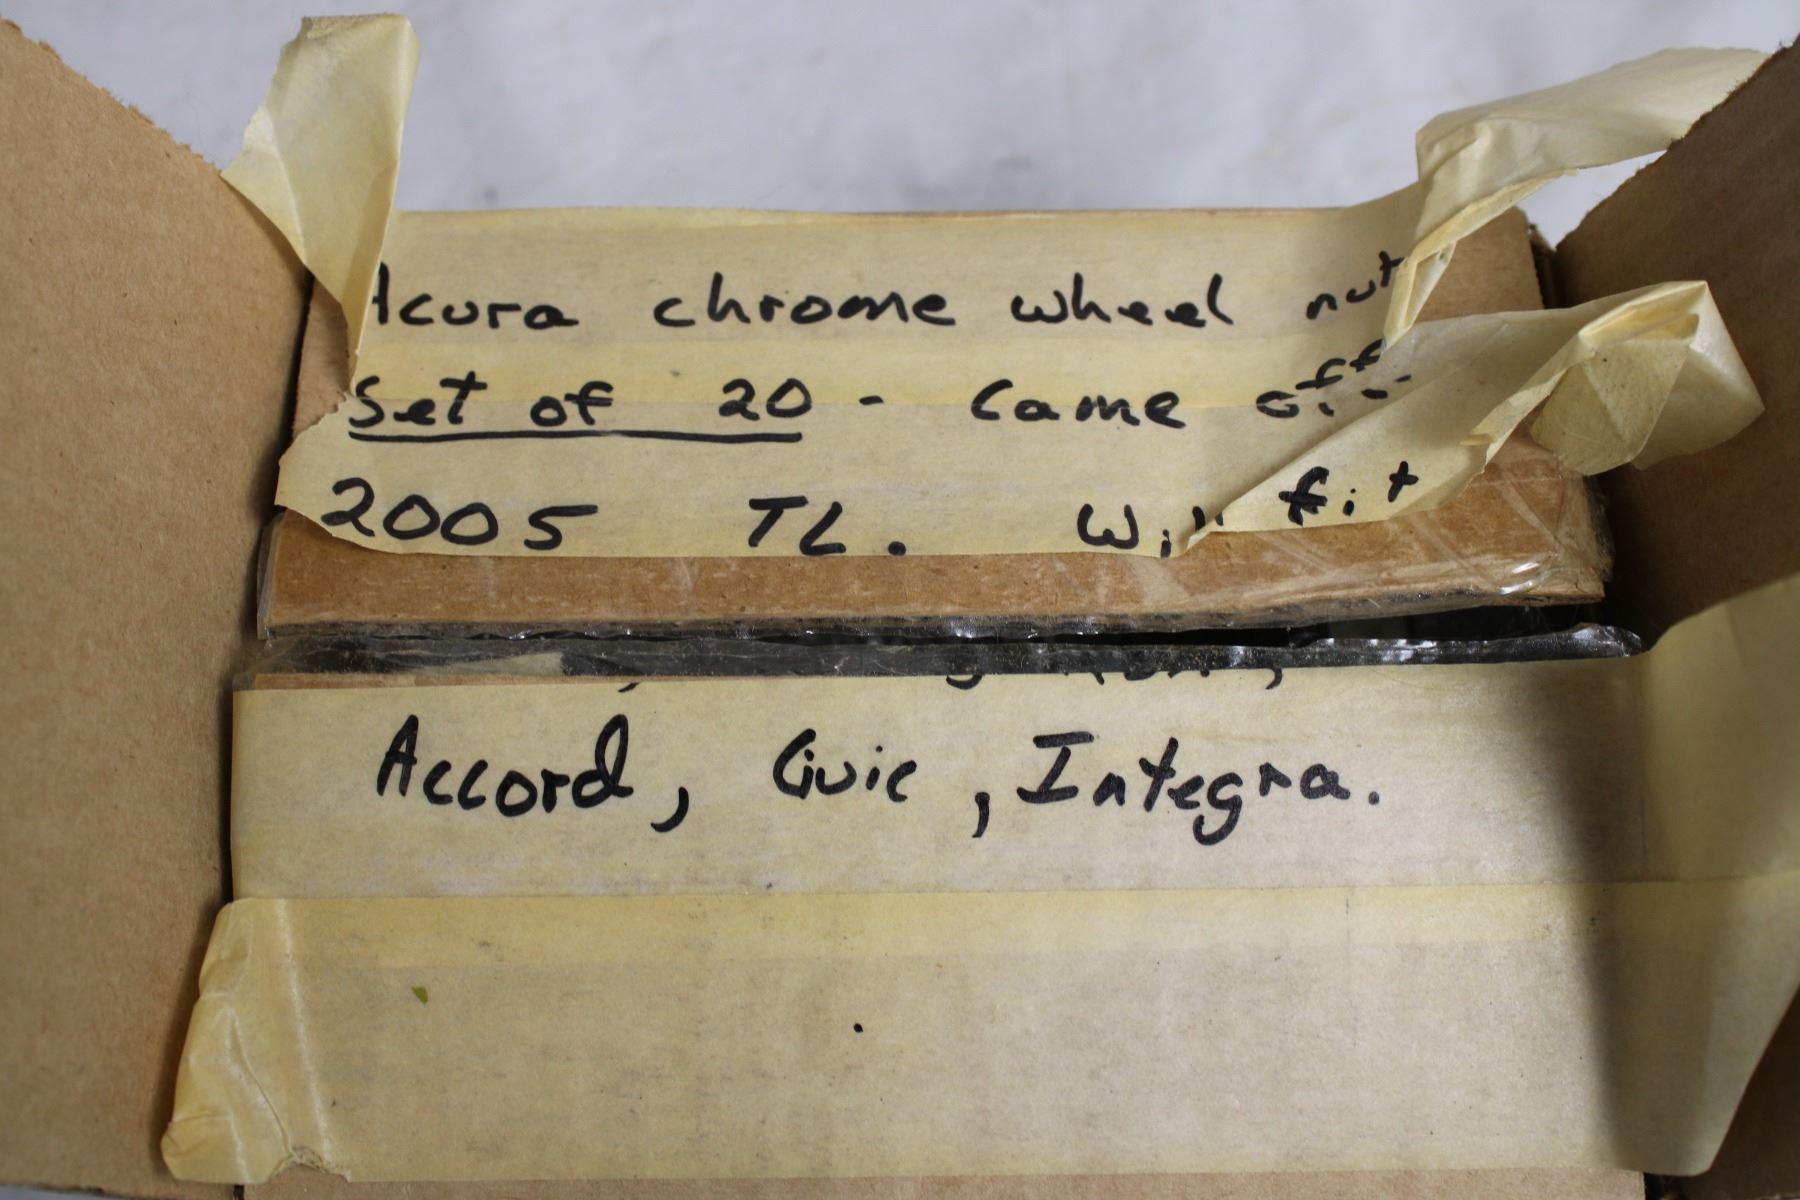 Acura chrome wheel nut
Set of 20 - Came off
2005 TL. Will fit
Accord, Civic, Integra.